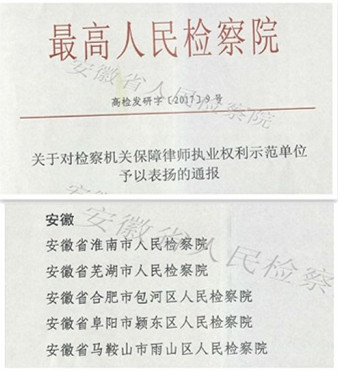 最高人民检察院
安徽省人民检察院
高检发研字〔2017〕9号
关于对检察机关保障律师执业权利示范单位
予以表扬的通报
安徽
安徽省淮南市人民检察院
安徽省芜湖市人民检察院
安徽省合肥市包河区人民检察院
安徽省阜阳市颍东区人民检察院
安徽省马鞍山市雨山区人民检察院
安徽省人民检察